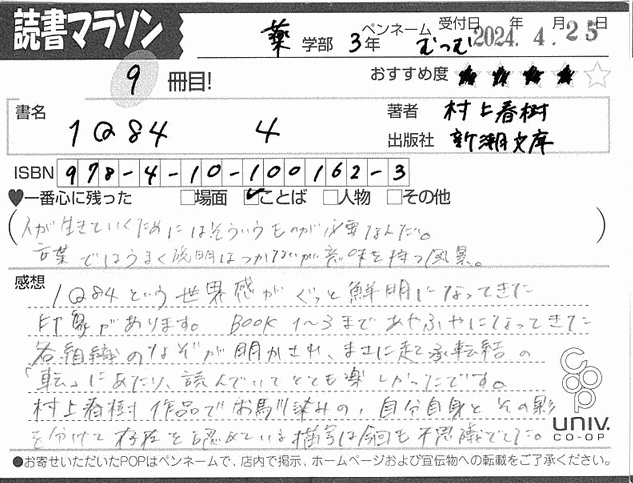 読書マラソン
薬 学部 3年 ペンネーム むつむ 受付日 2024.年 4.月 25日
9 冊目! おすすめ度 ★★★★☆
書名 1Q84 4
著者 村上春樹
出版社 新潮文庫
ISBN 978-4-10-100162-3
♥一番心に残った □場面 ☑ことば □人物 □その他
(人が生きていくためにはそういうものが必要なんだ。
言葉ではうまく説明はつかないが意味を持つ風景。)
感想
1Q84という世界感がぐっと鮮明になってきた
印象があります。 BOOK 1~3まであやふやになってきた
各組織のなぞが明かされ、まさに起承転結の
「転」にあたり、読んでいてとても楽しかったです。
村上春樹作品でお馴染みの、自分自身とその影
を分けて存在と認めている描写は今回も不思議でした。
coop
UNIV.
CO-OP
●お寄せいただいたPOPはペンネームで、店内で掲示、ホームページおよび宣伝物への転載をご了承ください。